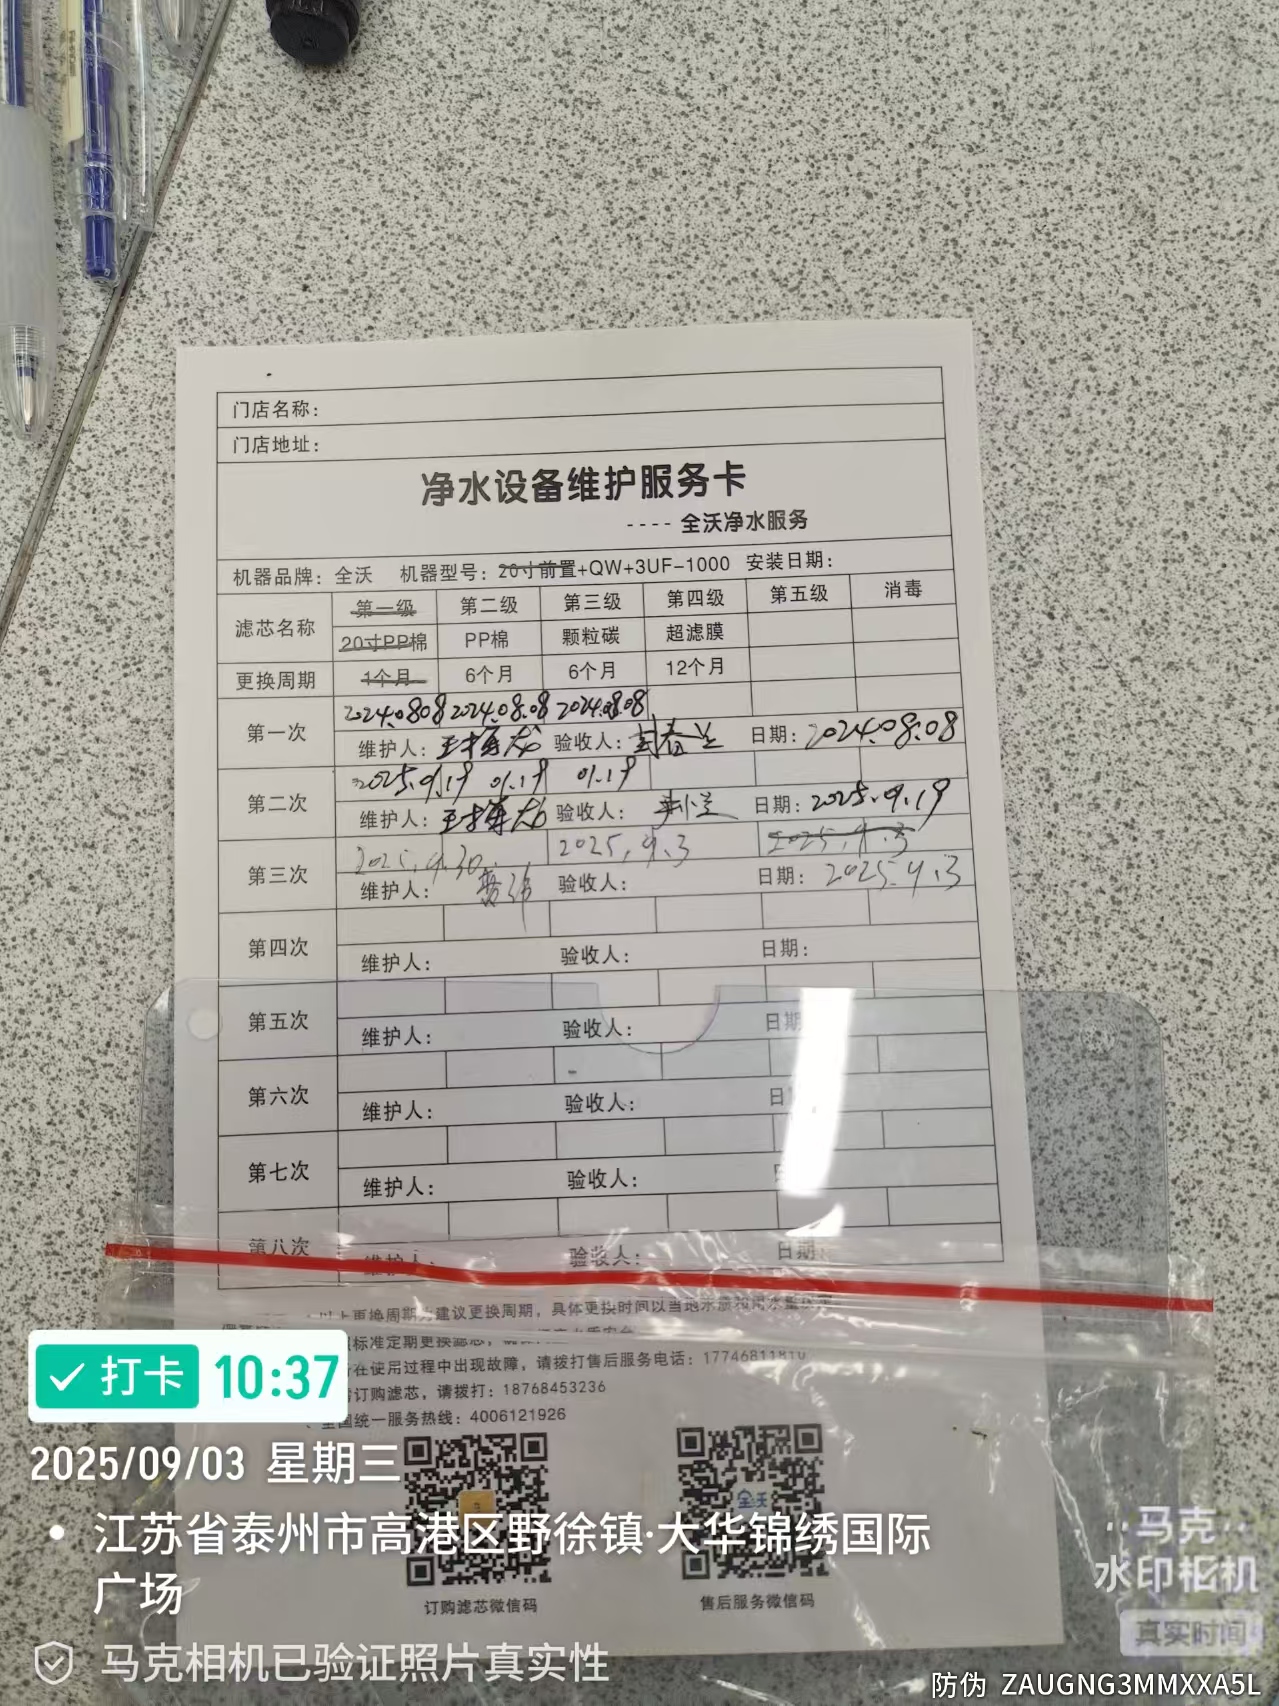 门店名称:
门店地址:
净水设备维护服务卡
---- 全沃净水服务
机器品牌: 全沃 机器型号: 20寸前置+QW+3UF-1000 安装日期:
滤芯名称 第一级 第二级 第三级 第四级 第五级 消毒
20寸PP棉 PP棉 颗粒碳 超滤膜
更换周期 1个月 6个月 6个月 12个月
第一次 2024.0808 2024.08.08 2024.08.08
维护人: 验收人: 日期: 2024.08.08
第二次 01.19 01.19
维护人: 验收人: 日期:
第三次 2025.9.3
维护人: 验收人: 日期: 2025.9.3
第四次
维护人: 验收人: 日期:
第五次
维护人: 验收人: 日期
第六次
维护人: 验收人: 日
第七次
维护人: 验收人:
第八次
维护人: 验收人: 日期:
以上更换周期为建议更换周期，具体更换时间以当地水质和用水量
标准定期更换滤芯，
在使用过程中出现故障，请拨打售后服务电话: 17746811810
订购滤芯，请拨打: 18768453236
全国统一服务热线: 4006121926
订购滤芯微信码 售后服务微信码
打卡 10:37
2025/09/03 星期三
江苏省泰州市高港区野徐镇·大华锦绣国际
广场
马克相机已验证照片真实性
马克
水印相机
真实时间
防伪 ZAUGNG3MMXXA5L